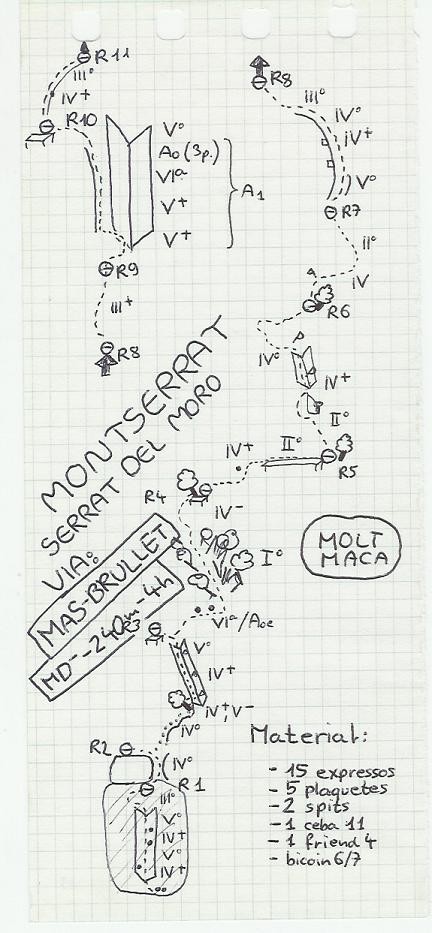 R11
III°
IV+
R10
V°
A0 (3p.)
VIª
V+
V+
A1
R9
III+
R8
R8
III°
IV°
IV+
V°
R7
II°
IV
R6
IV°
IV+
II°
R5
II°
IV+
R4
IV-
I°
MONTSERRAT
SERRAT DEL MORO
VIA:
MAS-BRULLET
MD--240m-4h
R3
VIª/A0e
V°
IV+
IV+,V-
IV°
IV°
R2
R1
III°
V°
IV+
V°
IV+
MOLT
MACA
Material:
- 15 expressos
- 5 plaquetes
- 2 spits
- 1 ceba 11
- 1 friend 4
- bicoin 6/7